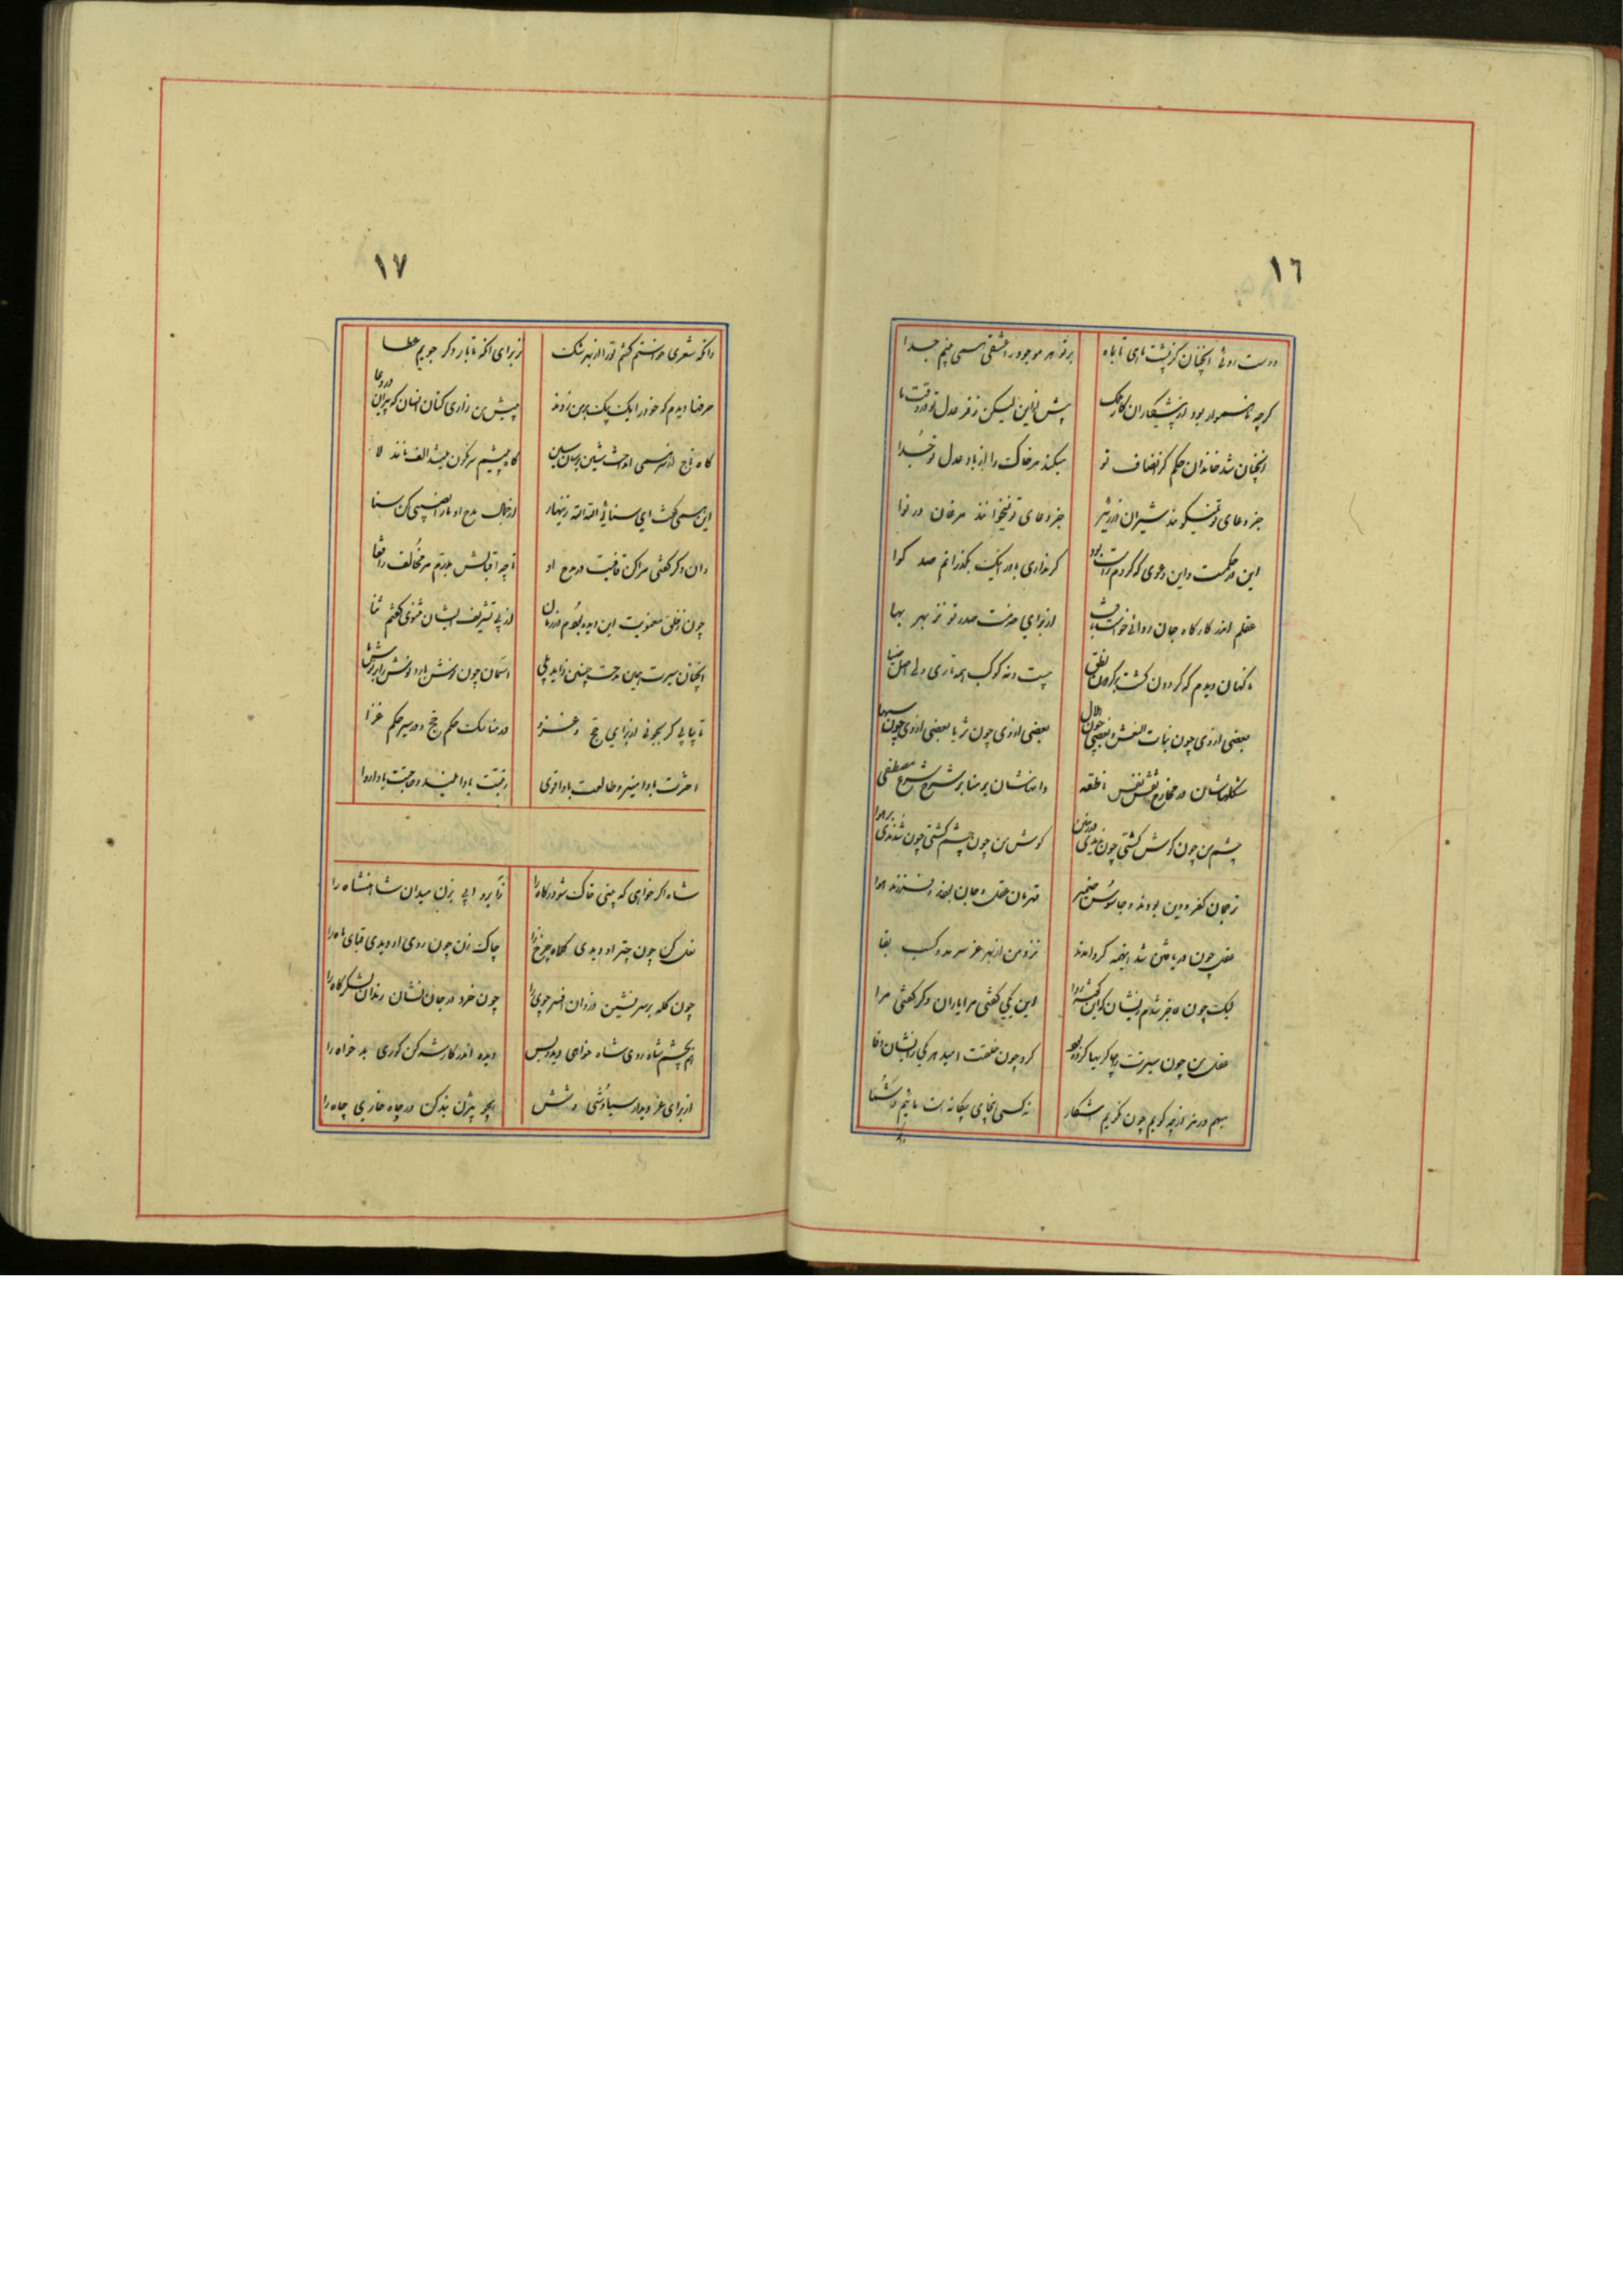 ١٦
دوست روئی انچنان کز پشت ماهی تا بماه برتو هر موجود را عشقی همی بینم جدا
کرچه ناهموار بود از پیشکاران کار ملک پیش ازین لیکن ز فر عدل تو در وقت ما
انچنان شد خاندان حکم کز انصاف تو میکند مر خاک را از باد عدل تو جدا
جز دعای تو نمیکویند شیران در زئیر جز دعای تو نمیخوانند مرغان در نوا
این چه حکمت و این دعوی که کردم راست بود کر نداری باور اینک بکذرانم صد کوا
عقلم اندر کارکاه جان روائی خواست یافت از برای حضرت صدر تو نز بهر بها
ناکهان دیدم که کردون کشت پر کردون نطق بیست و نه کوکب همه تاری ولی اصل ضیا
بعضی از وی چون بنات النعش و بعضی چون هلال بعضی از وی چون ثریا بعضی از وی چون سها
شکلهاشان در مخارج نقش نفس ناطقه دانهاشان بر منابر شرح شرع مصطفی
چشم من چون کوش کشتی چون بدیدی در زمین کوش من چون چشم کشتی چون شدندی بر هوا
ترجمان کفر و دین بودند و جاسوس ضمیر قهرمان عقل و جان بودند و فرزند هوا
عقل چون دریافتن شد اینهمه کرد امدند نزد من از بهر عز سرمد و کسب بقا
لیک چون عاجز شدم زیشان کزین کشته روا این یکی کفتی مرا یاران و کر کفتی مرا
عقل من چون سیرتت با چاکریها کرده بود کرد چون خلقت امید هر یکی زایشان وفا
میم در من از چه کویم چون کزیم اشکار نه کسی انجای بیکانه است مائیم و شما
١٧
وانکه شعری خواستم کفتم ترا از بهر شکت نز برای انکه تا بار دکر جویم عطا
حرفها دیدم که خود را یک بیک برمن زدند پیش من زاری کنان انسان که پیران در دعا
کاه تاج از سر همی انداخت شین برسان سین کاه پیشم سرنکون میشد الف مانند لا
این همی کفت ای سنائی الله الله زینهار در جمال مدح او ما را نصیبی کن سنا
وان دکر کفتی مراکن قافیت در مدح او تا چه اقبالش بدرم مر مخالف را قفا
چون ز خلق معنویت این دیده بودم در زمان از پی تشریف ایشان مثنوی کفتم ثنا
انچنان سیرت همین مدحت چنین زاید بلی اسمان چون نوش بارد نوش زاید بروشش
تا بیابی کر بجوئی از برای حج و غزو در مناسک حکم حج و در سیر حکم غزا
اخترت بادا منیر و طالعت بادا قوی رتبتت بادا بلند و حاجتت بادا روا
شاه اکر خواهی که بینی خاک شو درکاه را ز ابرو ابی بزن میدان شاهنشاه را
نعل کن چون چتر او دیدی کلاه چرخ را چاک زن چون روی او دیدی قبای ماه را
چون کله بر سر نشین در زوان افسر جوی را چون خرد در جان نشان رندان لشکرکاه را
هم بچشم شاه روی شاه خواهی دید و بس دیده اندر کار شه کن کوری بدخواه را
از برای عز دیدار سیاوشی و شش همچو بیژن بند کن در چاه خاری جاه را